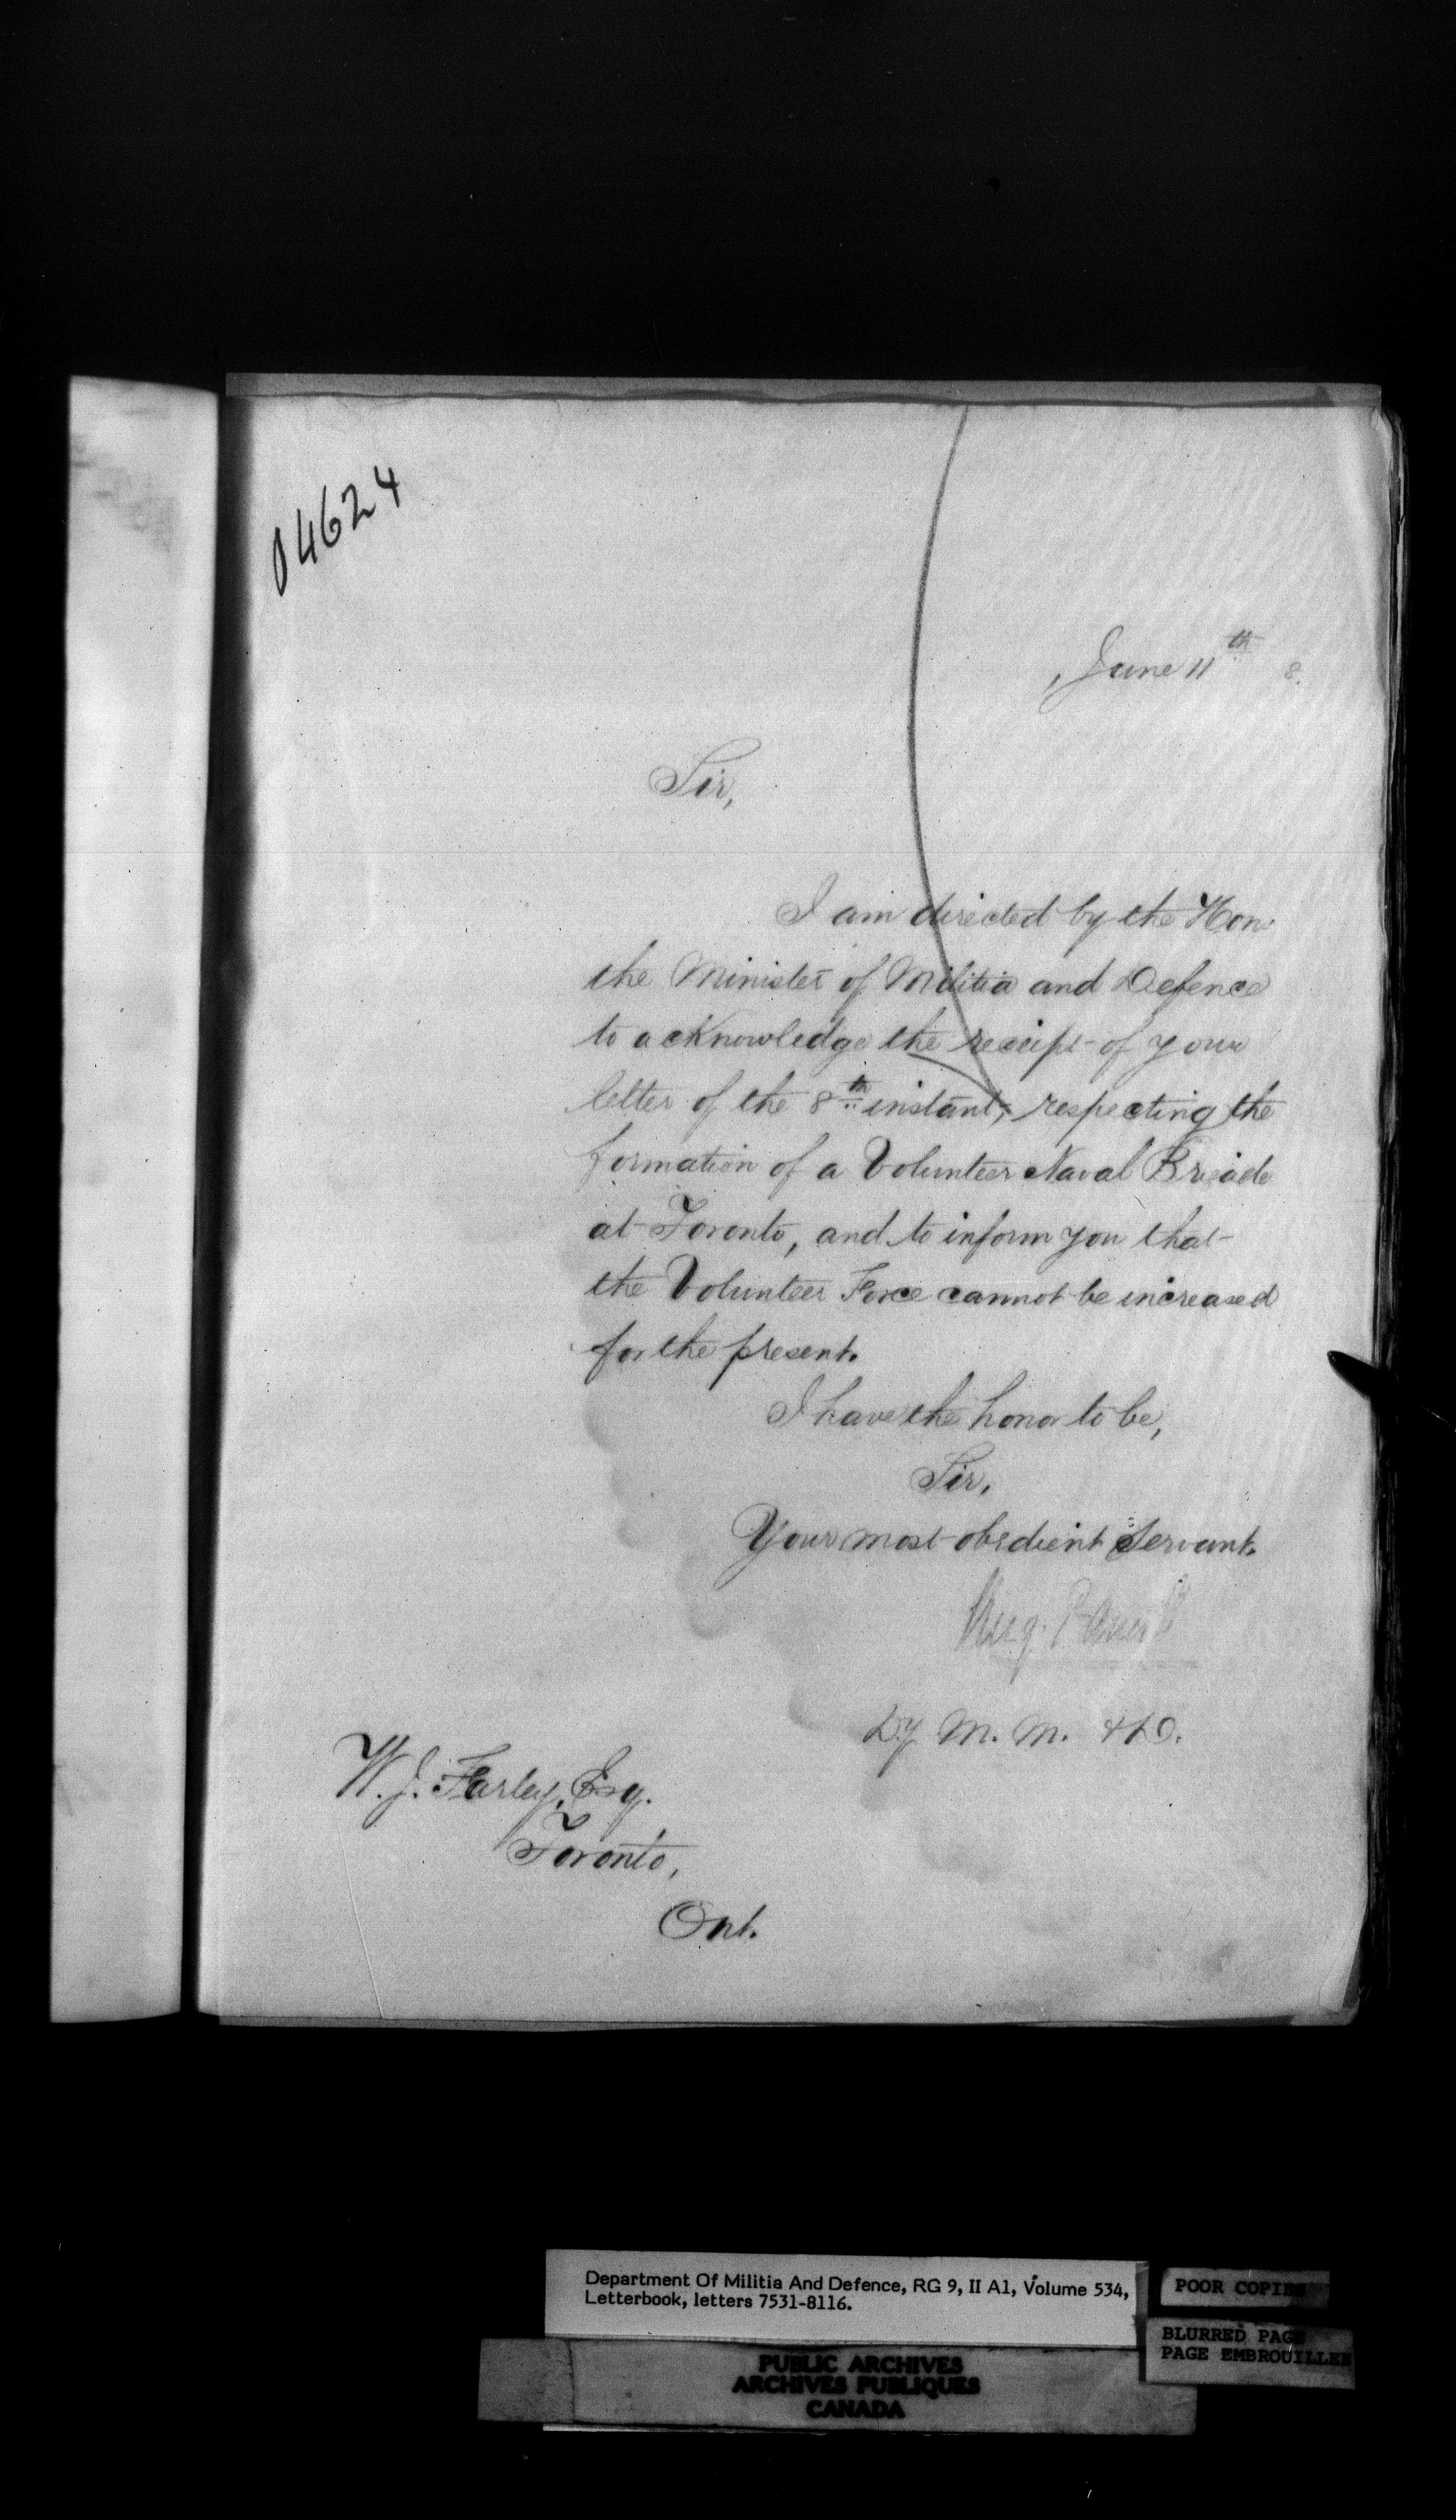 04624
June 11th 8.
Sir,
I am directed by the Hon.
the Minister of Militia and Defence
to acknowledge the receipt of your
letter of the 8th instant, respecting the
formation of a Volunteer Naval Brigade
at Toronto, and to inform you that
the Volunteer Force cannot be increased
for the present.
I have the honor to be,
Sir,
Your most obedient Servant.
Dy M. M. & D.
W. J. Farley, Esq.
Toronto,
Ont.
Department Of Militia And Defence, RG 9, II A1, Volume 534,
Letterbook, letters 7531-8116.
POOR COPIES
BLURRED PAGE
PAGE EMBROUILLEE
PUBLIC ARCHIVES
ARCHIVES PUBLIQUES
CANADA